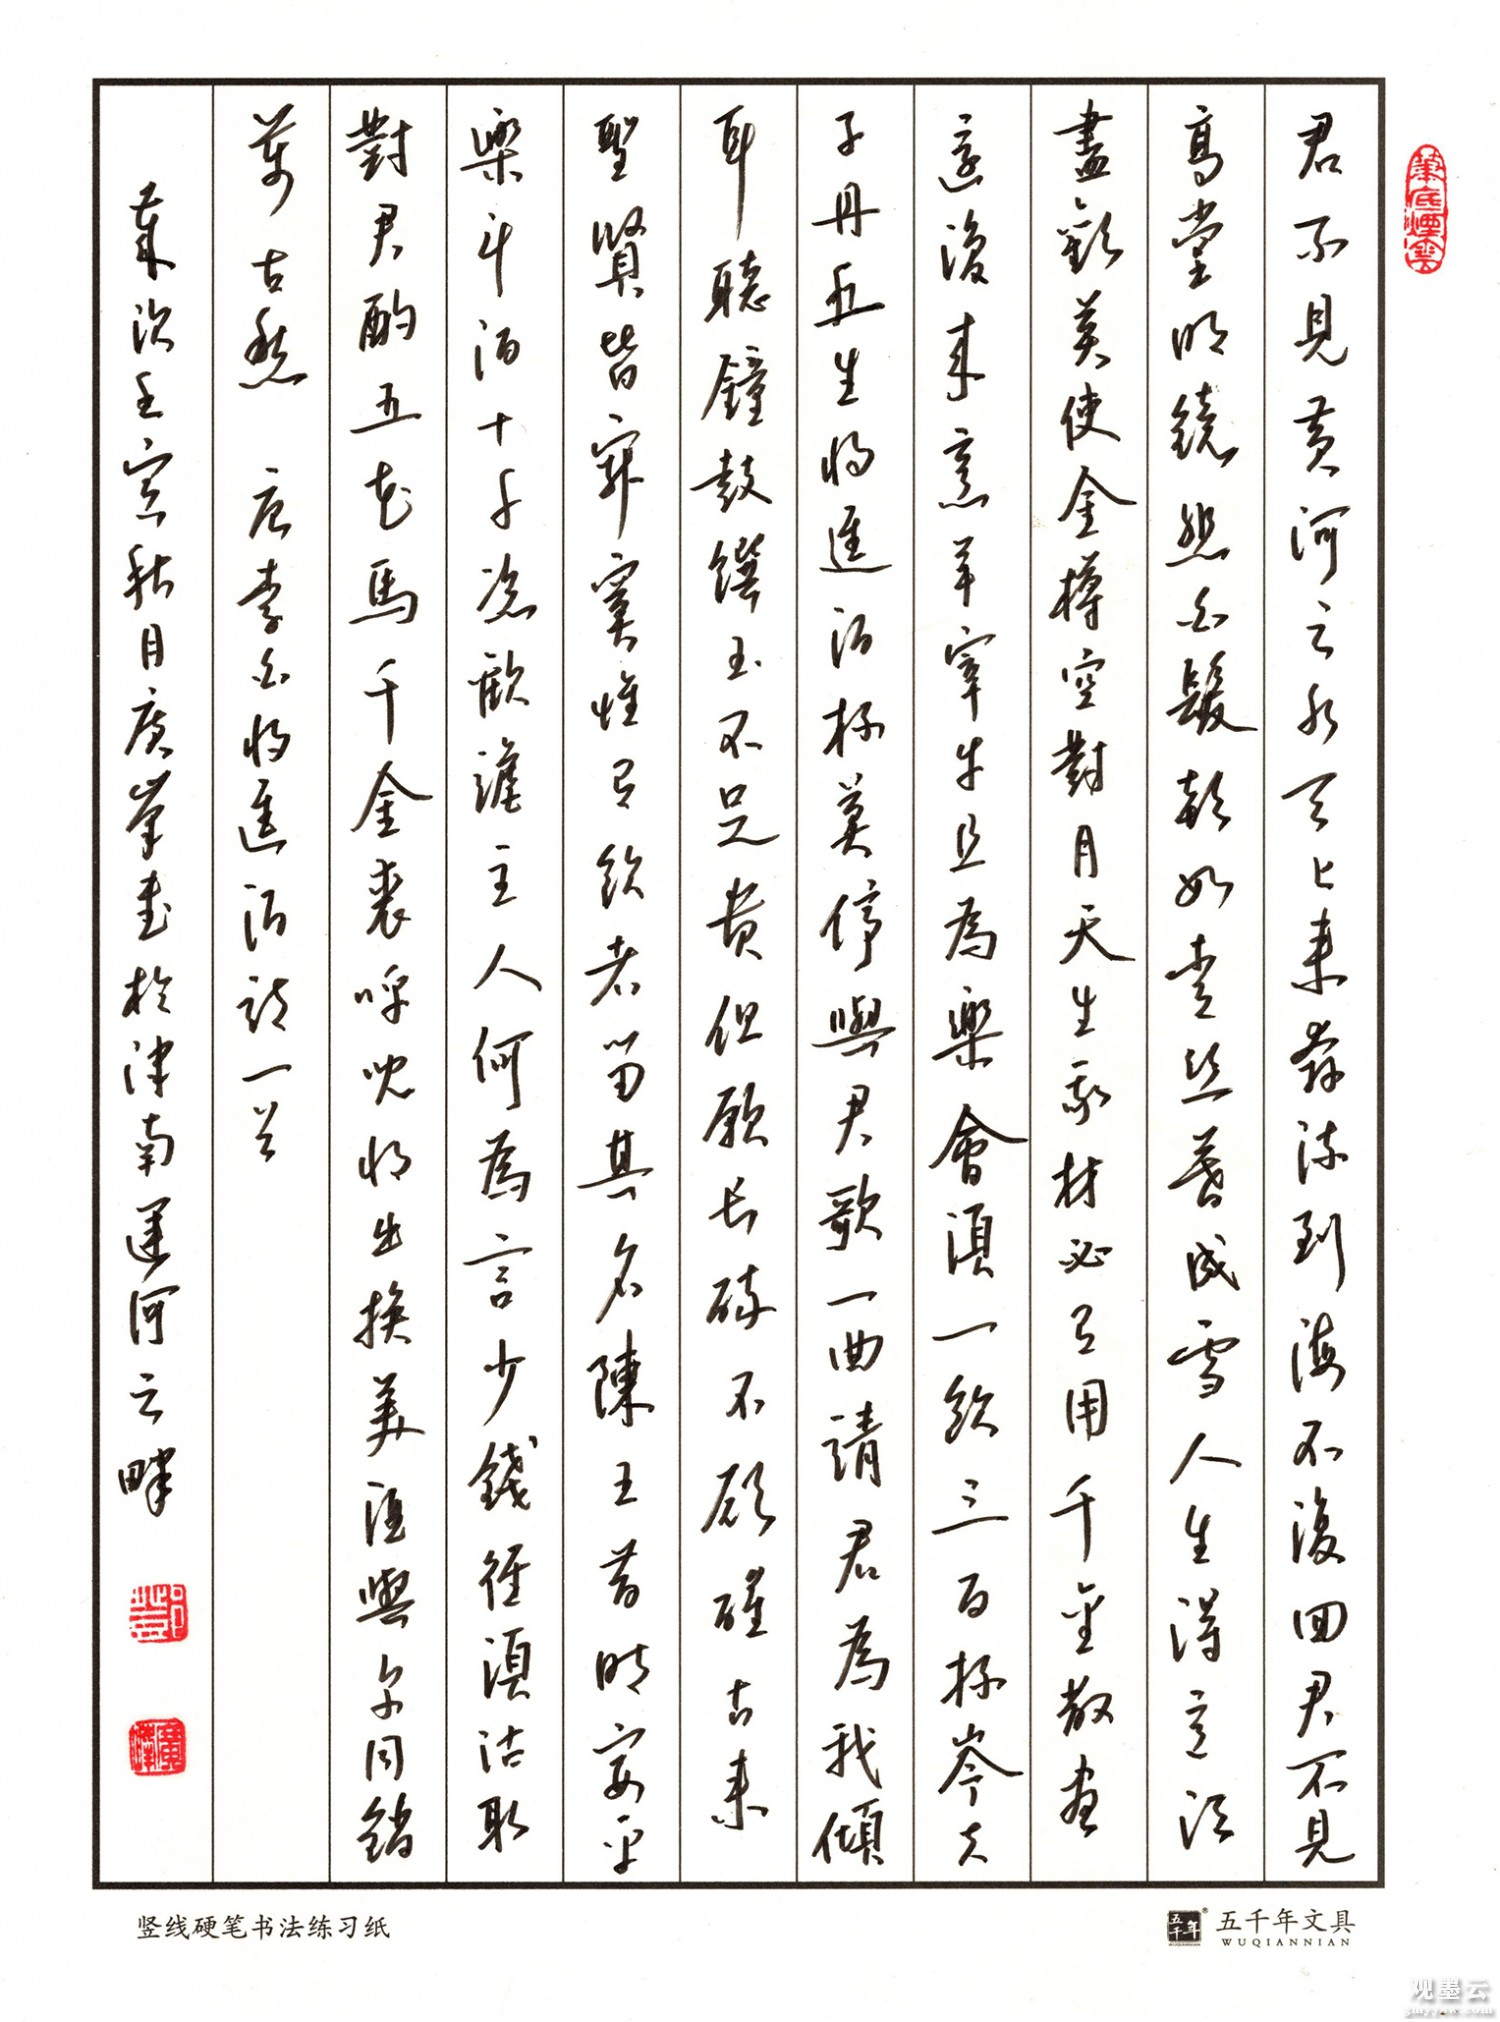 筆底煙雲
君不見黃河之水天上來奔流到海不復回君不見
高堂明鏡悲白髮朝如青絲暮成雪人生得意須
盡歡莫使金樽空對月天生我材必有用千金散盡
還復來烹羊宰牛且為樂會須一飲三百杯岑夫
子丹丘生將進酒杯莫停與君歌一曲請君為我傾
耳聽鐘鼓饌玉不足貴但願长醉不願醒古來
聖賢皆寂寞惟有飲者留其名陳王昔時宴平
樂斗酒十千恣歡謔主人何為言少錢徑須沽取
對君酌五花馬千金裘呼兒將出換美酒與爾同銷
萬古愁 唐李白將進酒詩一首
歲次壬寅秋月廣峯書於津南運河之畔
竖线硬笔书法练习纸
五千年
五千年文具
WUQIANNIAN
观墨云